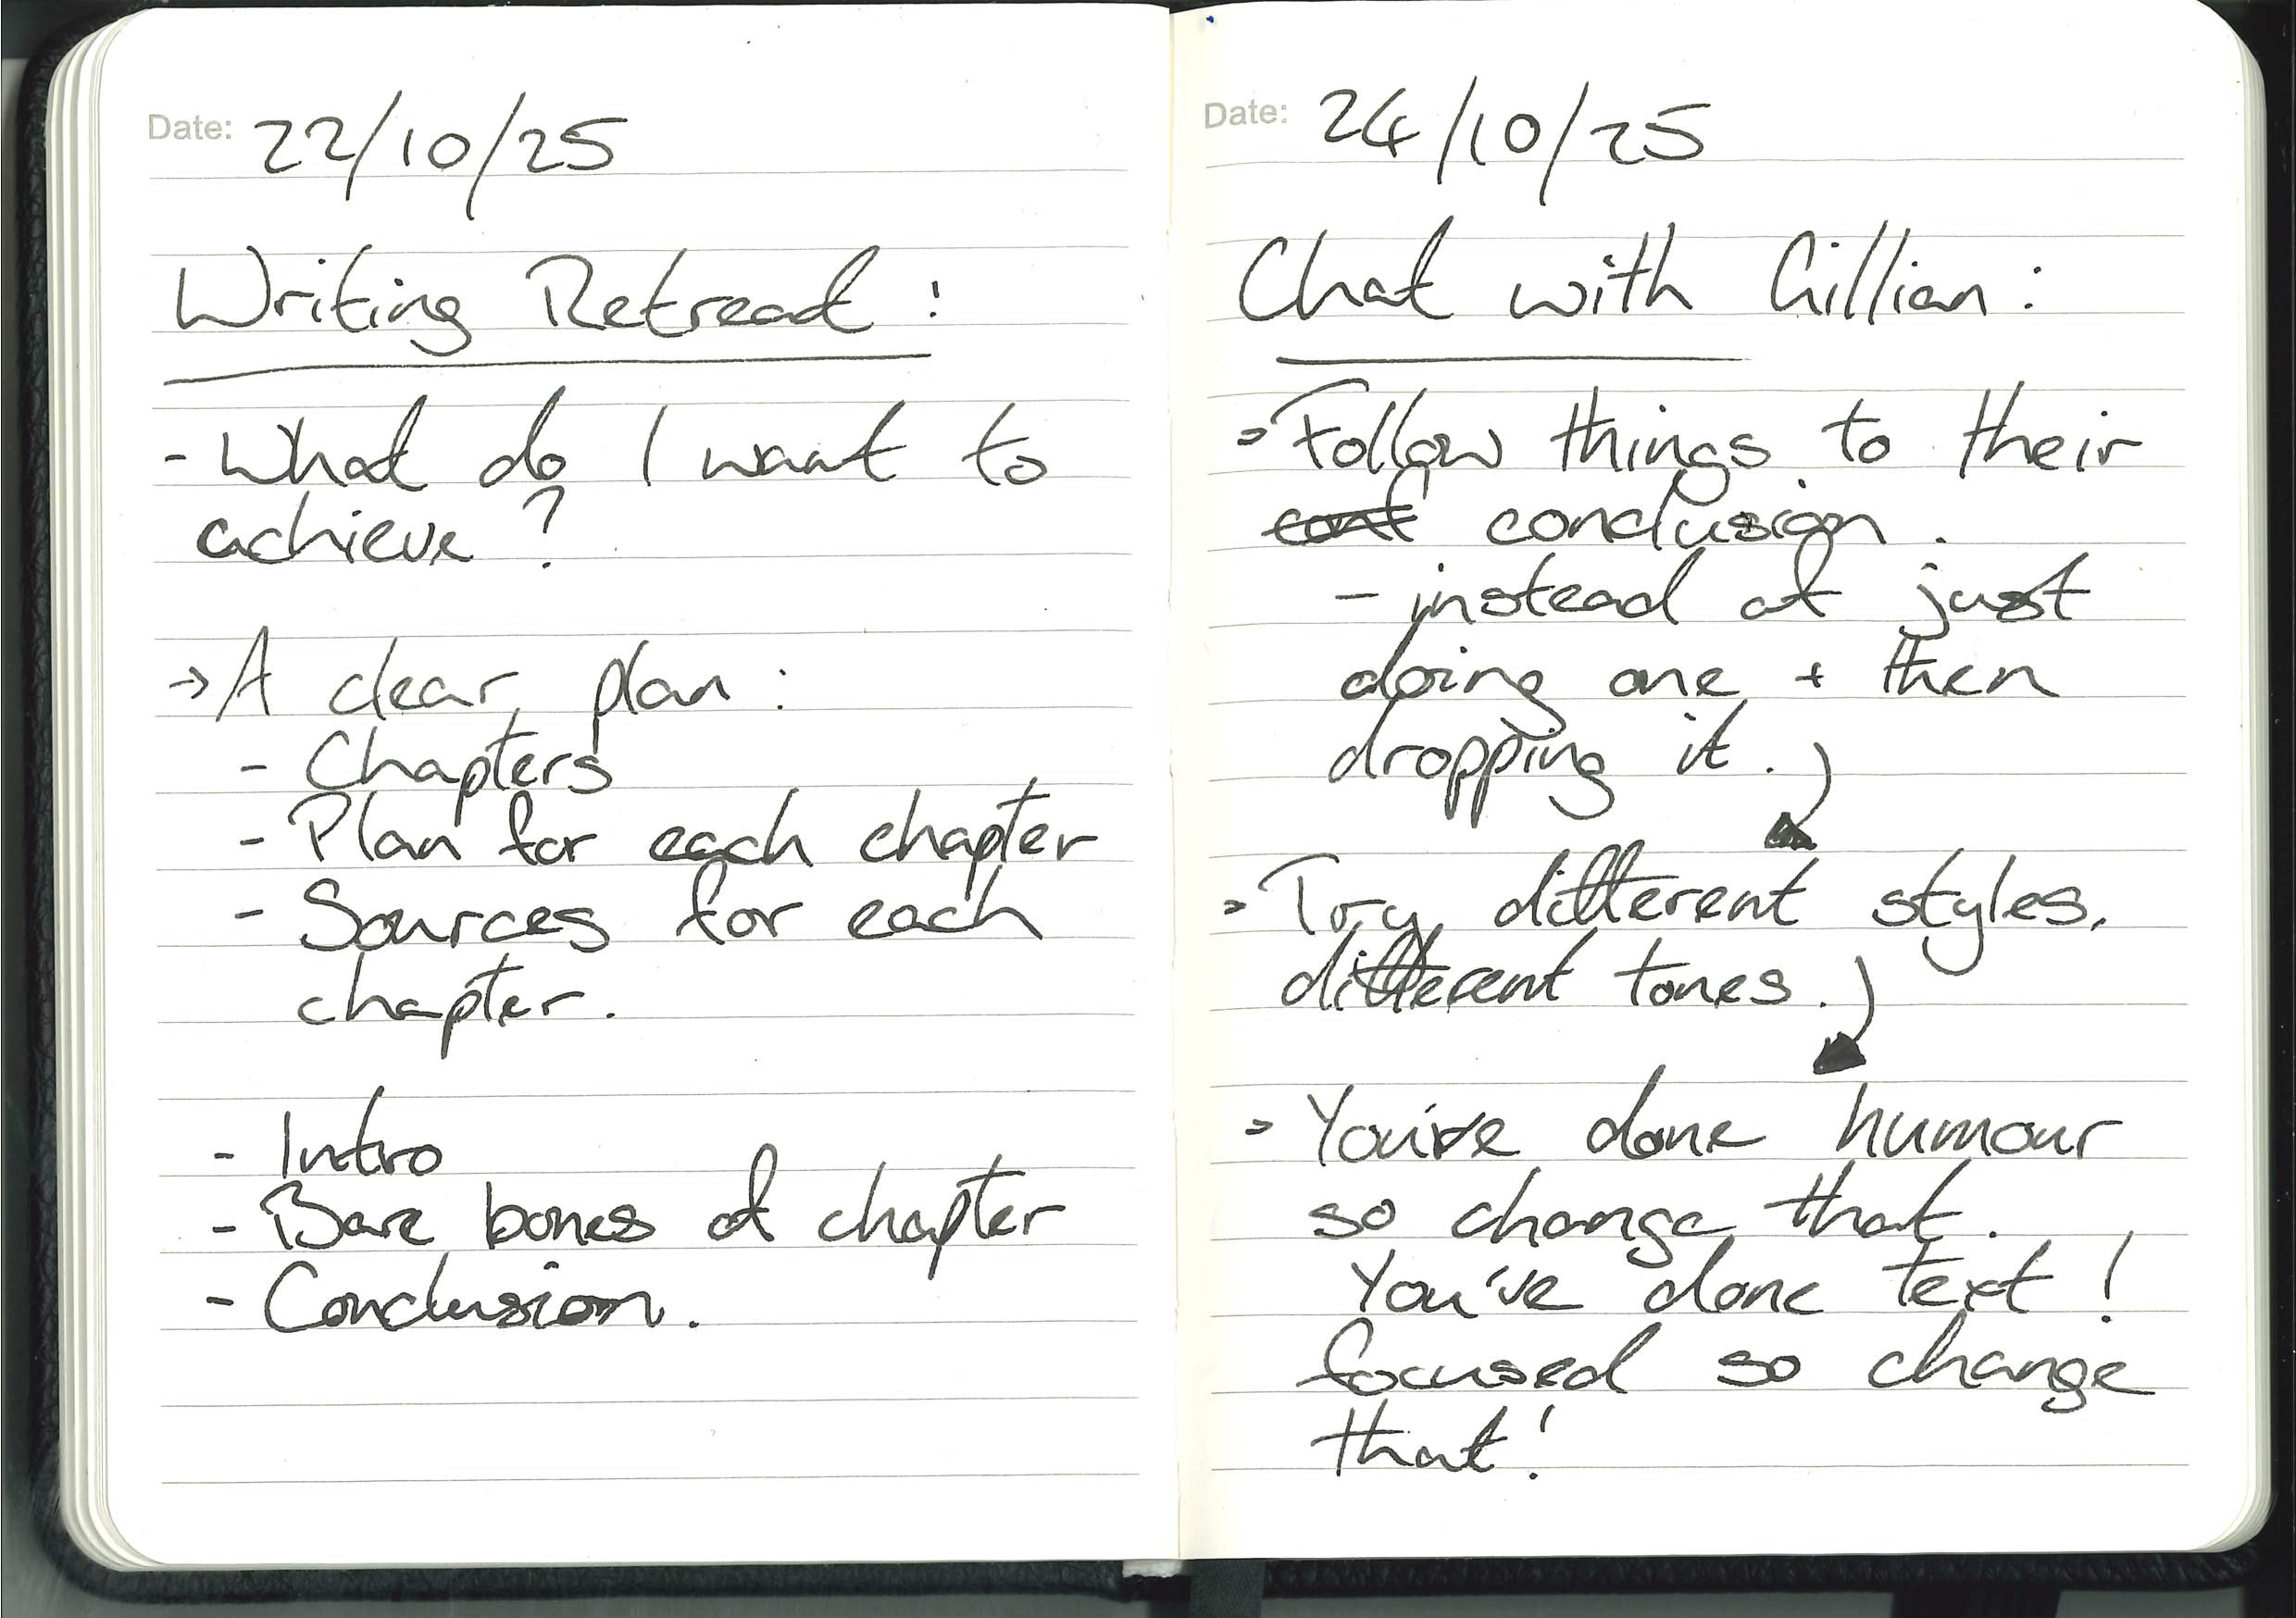 Date: 22/10/25
Writing Retreat:
- What do I want to
achieve?
→ A clear plan:
- Chapters
- Plan for each chapter
- Sources for each
chapter.
- Intro
- Bare bones of chapter
- Conclusion.
Date: 24/10/25
Chat with Gillian:
⇒ Follow things to their
conclusion.
- instead of just
doing one + then
dropping it.
⇒ Try different styles,
different tones.
⇒ You've done humour
so change that.
You've done text!
focused so change
that!